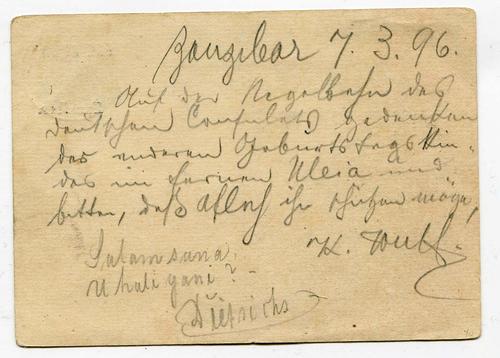 Zanzibar 7.3.96.
Auf der Kegelbahn des
deutschen Consulats gedenken
des anderen Geburtstagskin-
des im fernen Uleia und
bitten, daß Allah ihn schützen möge,
K. Wulff.
Salam sana
U hali gani?
Dietrichs